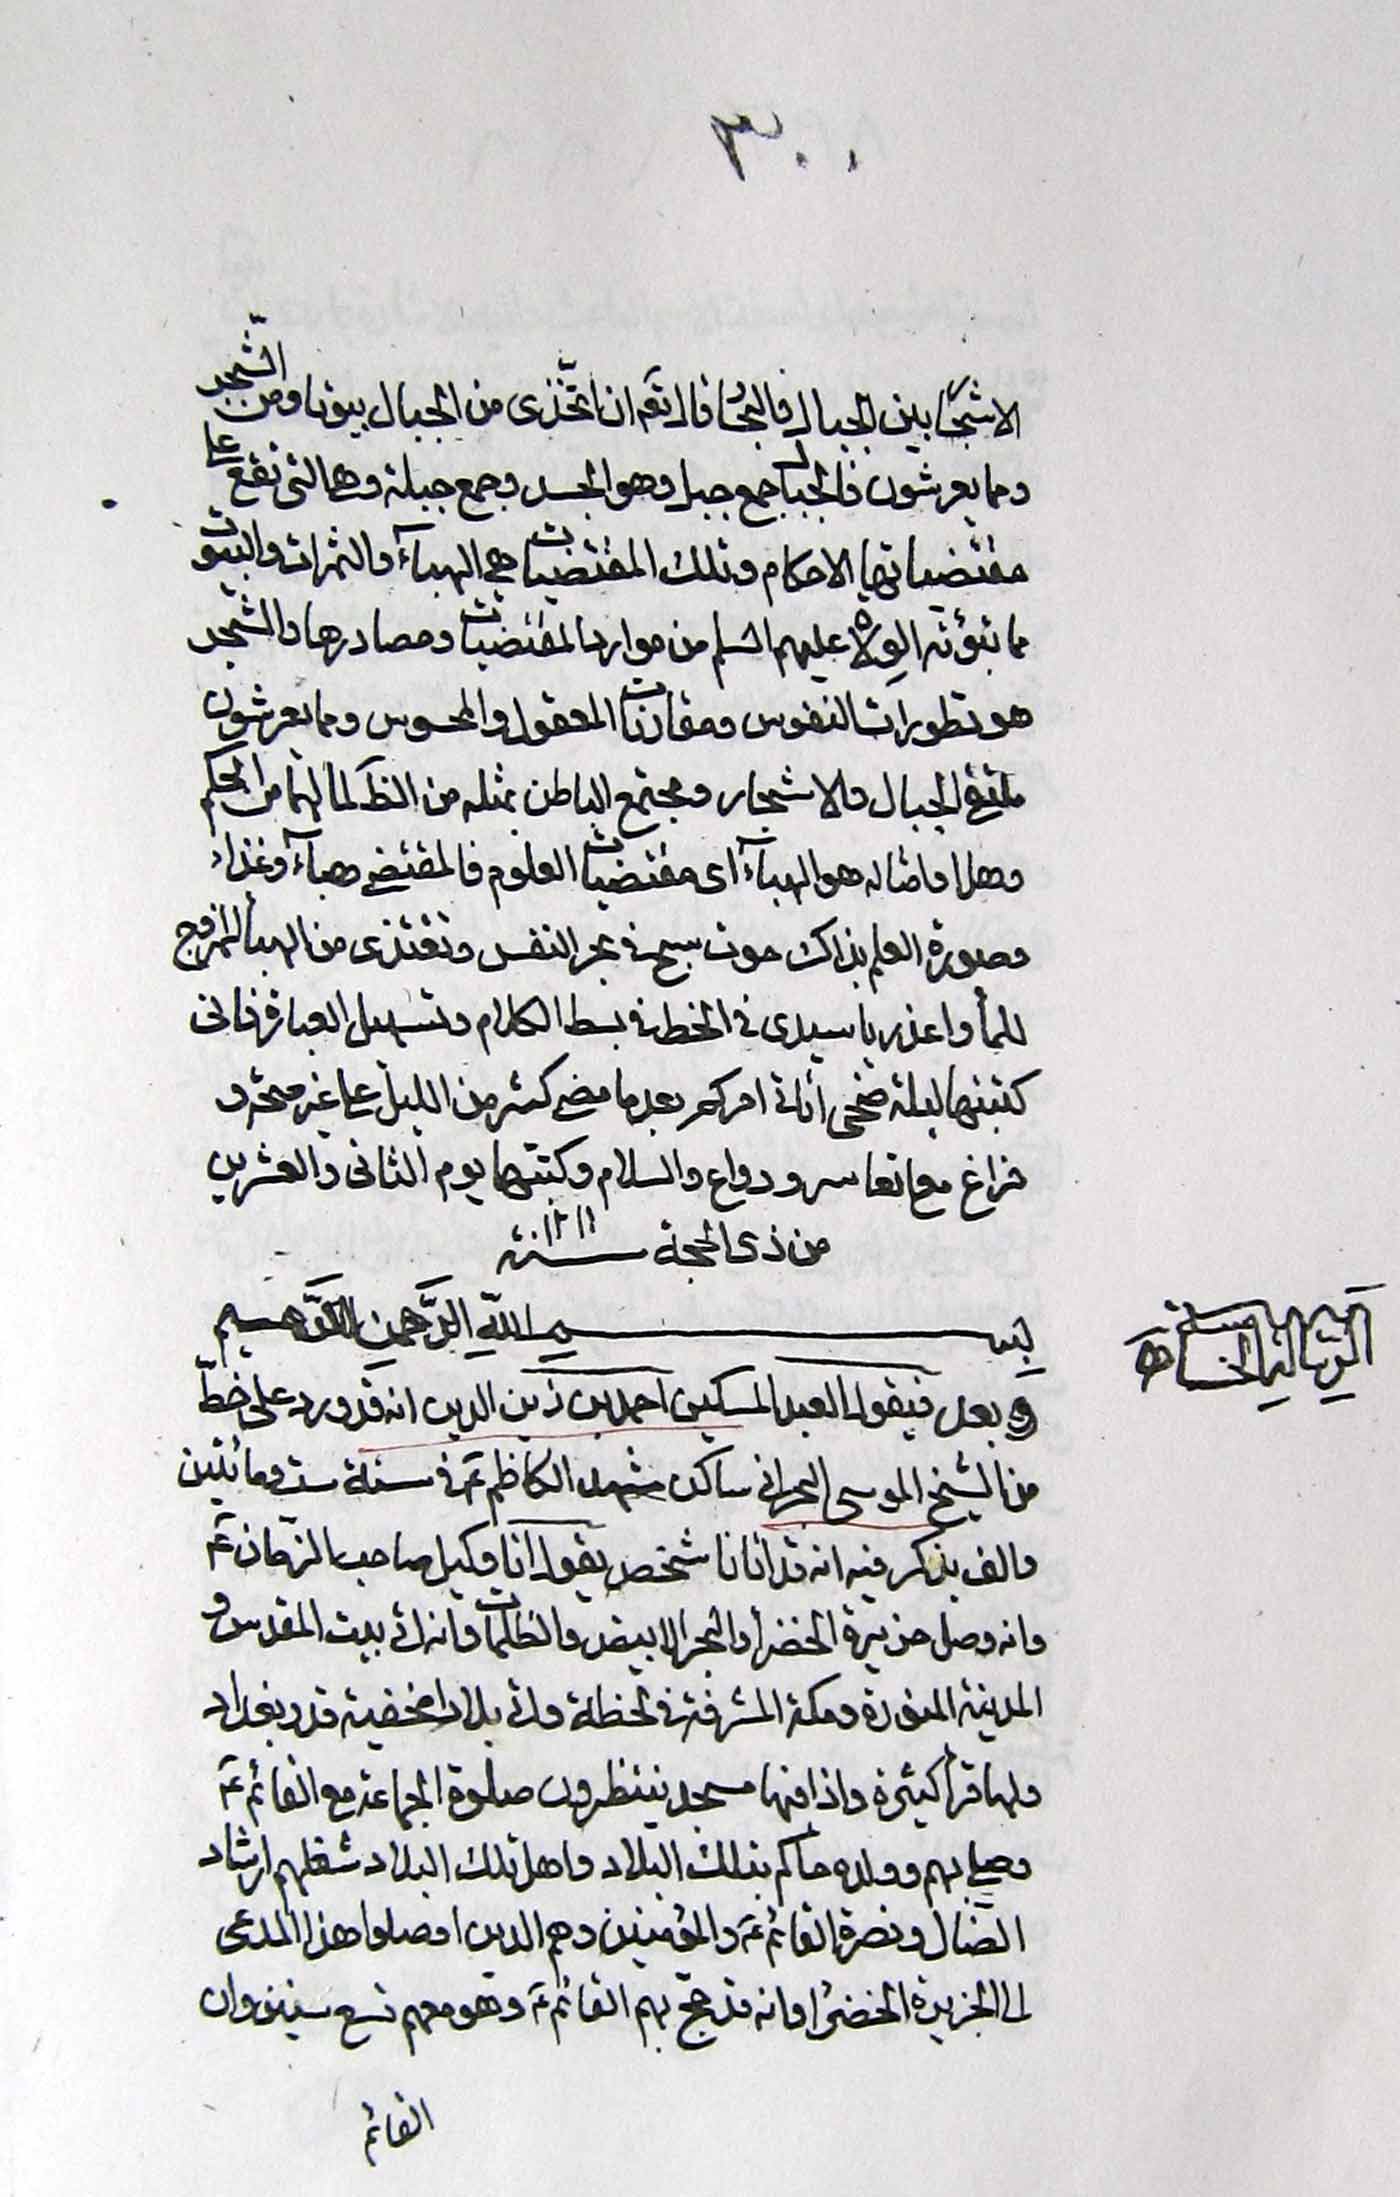 ٣٠٠
الاشجا بين الجبال فالبحا قال تعه ان اتخذى من الجبال بيوتا ومن الشجر
ومما يعرشون فالجبال جمع جبل وهو الجسد وجمع جبلة وهما التى تقع على
مقتضياتها الاحكام وتلك المقتضيات هى الهبآء والثمرات والبيوت
ما تبوئته الولاة عليهم السلم من موارد المقتضيات ومصادرها والشجر
هو تطورات النفوس ومقارنات المعقول والمحسوس ومما يعرشون
ملتقى الجبال والاشجار ومجتمع الباطن بمثله من الظ لما لهما من الحكم
وهذا وامثاله هو الهبآء اى مقتضيات العلوم فالمقتضى هبآء وغذاء
وصورة العلم بذاك حوت سبح فى بحر النفس وتغتذى من الهبأ الممزوج
للمأ واعذر يا سيدى فى الخط فى بسط الكلام وتسهيل العبارة فانى
كتبتها ليلة ضحى أتانى امركم بعد ما مضى كثير من الليل على غير
فراغ مع نعاس ووداع والسلام وكتبتها يوم الثانى والعشرين
من ذى الحجة سنة
بسم الله الرحمن الرحيم
الرسالة الخامسة
وبعد فيقول العبد المسكين احمد بن زين الدين انه قد ورد على خط
من الشيخ الموسى البحرانى ساكن مشهد الكاظم ع فى سنة ست ومائتين
والف يذكر فيه انه قد اتانا شخص يقول انا وكيل صاحب الزمان ع
وانه وصل جزيرة الخضرأ والبحر الابيض والظلمات وانه اتى بيت المقدس و
المدينة المنورة ومكة المشرفة فى لحظة واتى بلادا مخفية قدر بغداد
ولها قرأ كثيرة واذا فيها مسجد ينتظرون صلوة الجماعة مع القائم ع
وصلى بهم وولده حاكم بذلك البلاد واهل تلك البلاد شغلهم ارشاد
الضال ونصرة القائم ع والمؤمنين وهم الذين اوصلوا هذا المدعى
الى الجزيرة الخضرا وانه قد حج بهم القائم ع وهو معهم تسع سنين وان
القائم